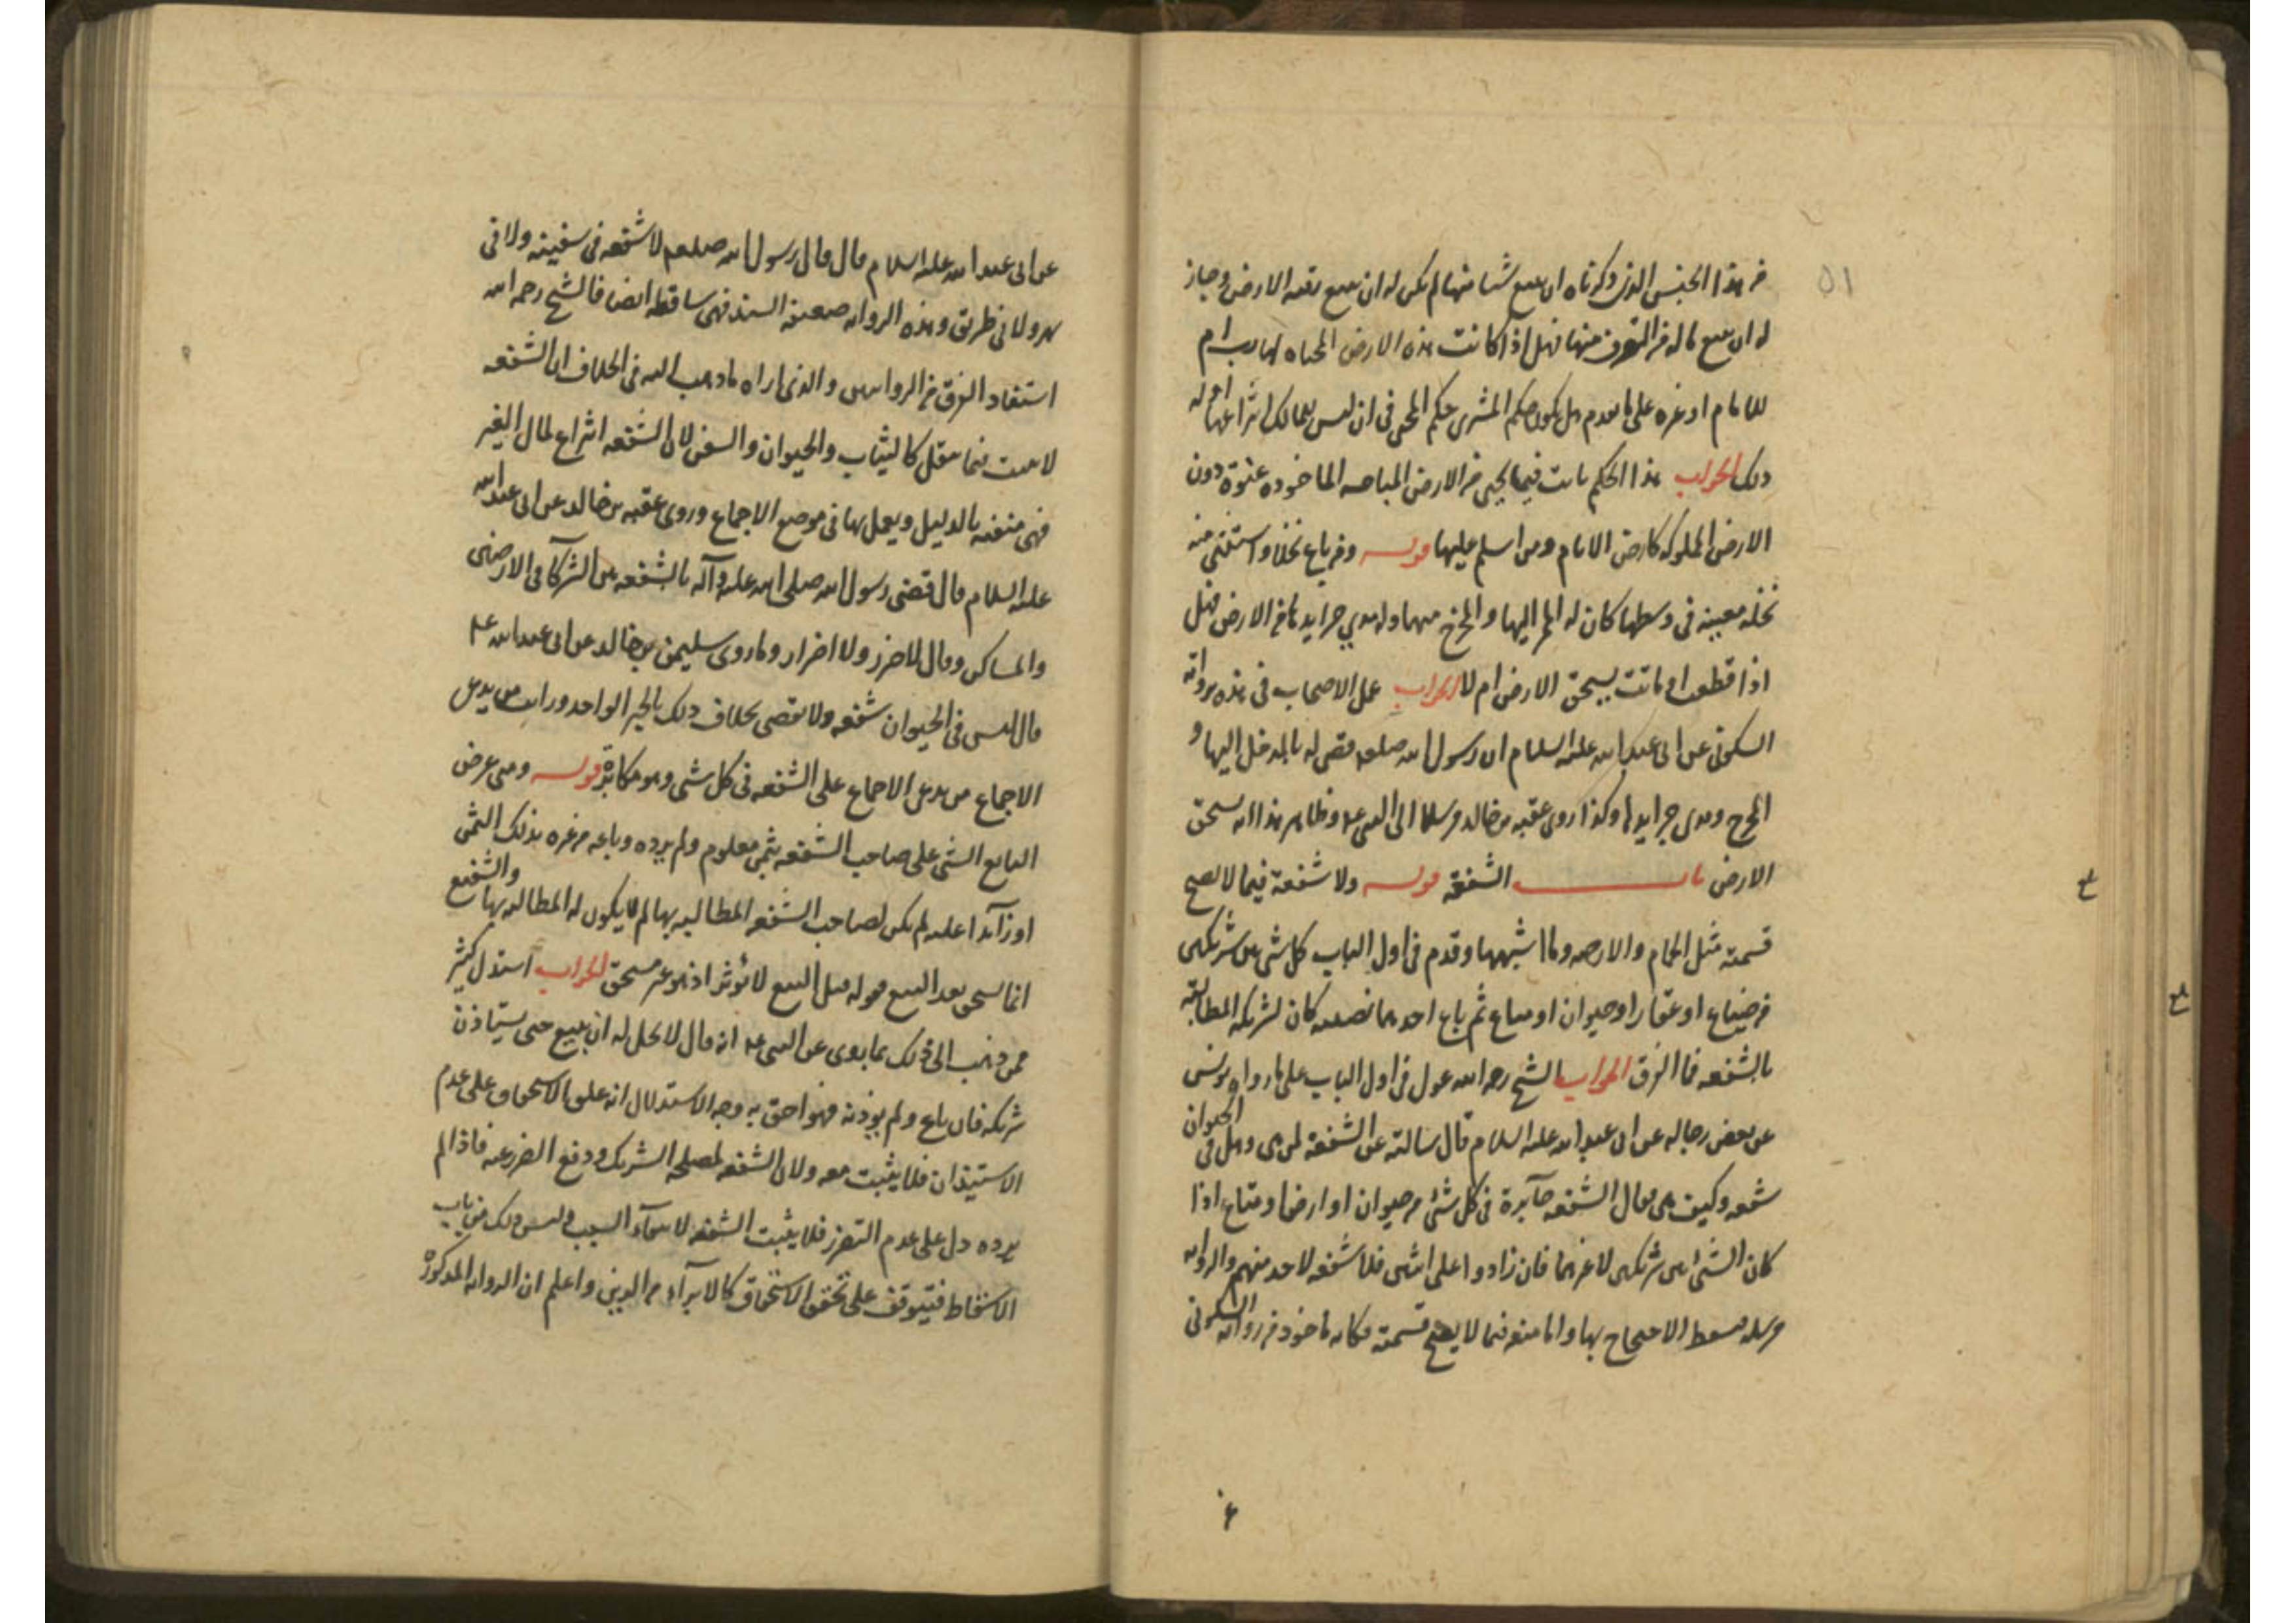 ٥١
من هذا الجنس الذي ذكرناه ان يبيع شيئا منها لم يكن له ان يبيع رقبة الارض وجاز
له ان يبيع ما له من التصرف منها فهل اذا كانت هذه الارض المحياه لها رب ام
للامام او غيره على ما تقدم هل يكون حكم المشترى حكم المحى فى ان ليس للمالك انتزاعها او له
ذلك الجواب هذا الحكم ثابت فيما يحيى من الارض المباحه الماخوذه عنوة دون
الارض المملوكه كارض الامام ومن اسلم عليها قوله ومن باع نخلا واستثنى منه
نخله معينه فى وسطها كان له الممر اليها والمخرج منها وله مدي جرايدها من الارض فهل
اذا قطعت او ماتت يستحق الارض ام لا الجواب عمل الاصحاب فى هذه برواية
السكونى عن ابى عبد الله عليه السلام ان رسول الله صلعم قضى له بالمدخل اليها و
المخرج ومدى جرايدها وكذا روى عقبه بن خالد مرسلا الى النبى ع وظاهر هذا انه يستحق
الارض باب الشفعة قوله ولا شفعة فيما لا يصح
قسمته مثل الحمام والارحيه وما اشبهها وقدم فى اول الباب كل شى بين شريكين
من ضياع او عقار او حيوان او متاع ثم باع احدهما نصيبه كان لشريكه المطالبة
بالشفعه فما الفرق الجواب الشيخ رحمه الله عول فى اول الباب على ما رواه يونس
عن بعض رجاله عن ابى عبد الله عليه السلام قال سالته عن الشفعة لمن هى وهل فى الحيوان
شفعه وكيف هى فقال الشفعه جآيزة فى كل شئ من حيوان او ارض او متاع اذا
كان الشئ بين شريكين لا غيرهما فان زادوا على اثنين فلا شفعه لاحد منهم والروايه
مرسله فسقط الاحتجاج بها واما منعه فيما لا يصح قسمته فكانه ماخوذ من رواية السكونى
عن ابى عبد الله عليه السلام قال قال رسول الله صلعم لا شفعه فى سفينه ولا فى
نهر ولا فى طريق وهذه الروايه ضعيفة السند فهى ساقطه ايضا فالشيخ رحمه الله
استفاد الفرق من الروايتين والذى اراه ما ذهب اليه فى الخلاف ان الشفعه
لا تثبت فيما ينقل كالثياب والحيوان والسفن لان الشفعه انتزاع لمال الغير
فهى منفيه بالدليل ويعمل بها فى موضع الاجماع وروى عقبه بن خالد عن ابى عبد الله
عليه السلام قال قضى رسول الله صلى الله عليه وآله بالشفعه بين الشركآ فى الارضين
والمساكن وقال لا ضرر ولا اضرار وما روى سليمن بن خالد عن ابى عبد الله ع
قال ليس فى الحيوان شفعه ولا نقضى بخلاف ذلك بالخبر الواحد ورايت من يدعى
الاجماع من يدعى الاجماع على الشفعه فى كل شى وهو مكابرة قوله ومتى عرض
البايع الشى على صاحب الشفعه بثمن معلوم ولم يرده وباعه من غيره بذلك الثمن
او زآيدا عليه لم يكن لصاحب الشفعه المطالبه بها لم لا يكون له المطالبه بها والشفيع
انما يستحق بعد البيع فقوله قبل البيع لا يؤثر اذ هو غير مستحق الجواب استدل كثير
ممن ذهب الى ذلك بما يروى عن النبى ع انه قال لا يحل له ان يبيع حتى يستاذن
شريكه فان باع ولم يوذنه فهو احق به وجه الاستدلال انه علق الاستحقاق على عدم
الاستيذان فلا يثبت معه ولان الشفعه لمصلحه الشريك ودفع الضرر عنه فاذا لم
يرده دل على عدم التضرر فلا يثبت الشفعه لانتفآء السبب وليس ذلك من باب
الاسقاط فيتوقف على تحقق الاستحقاق كالابرآء من الدين واعلم ان الروايه المذكورة